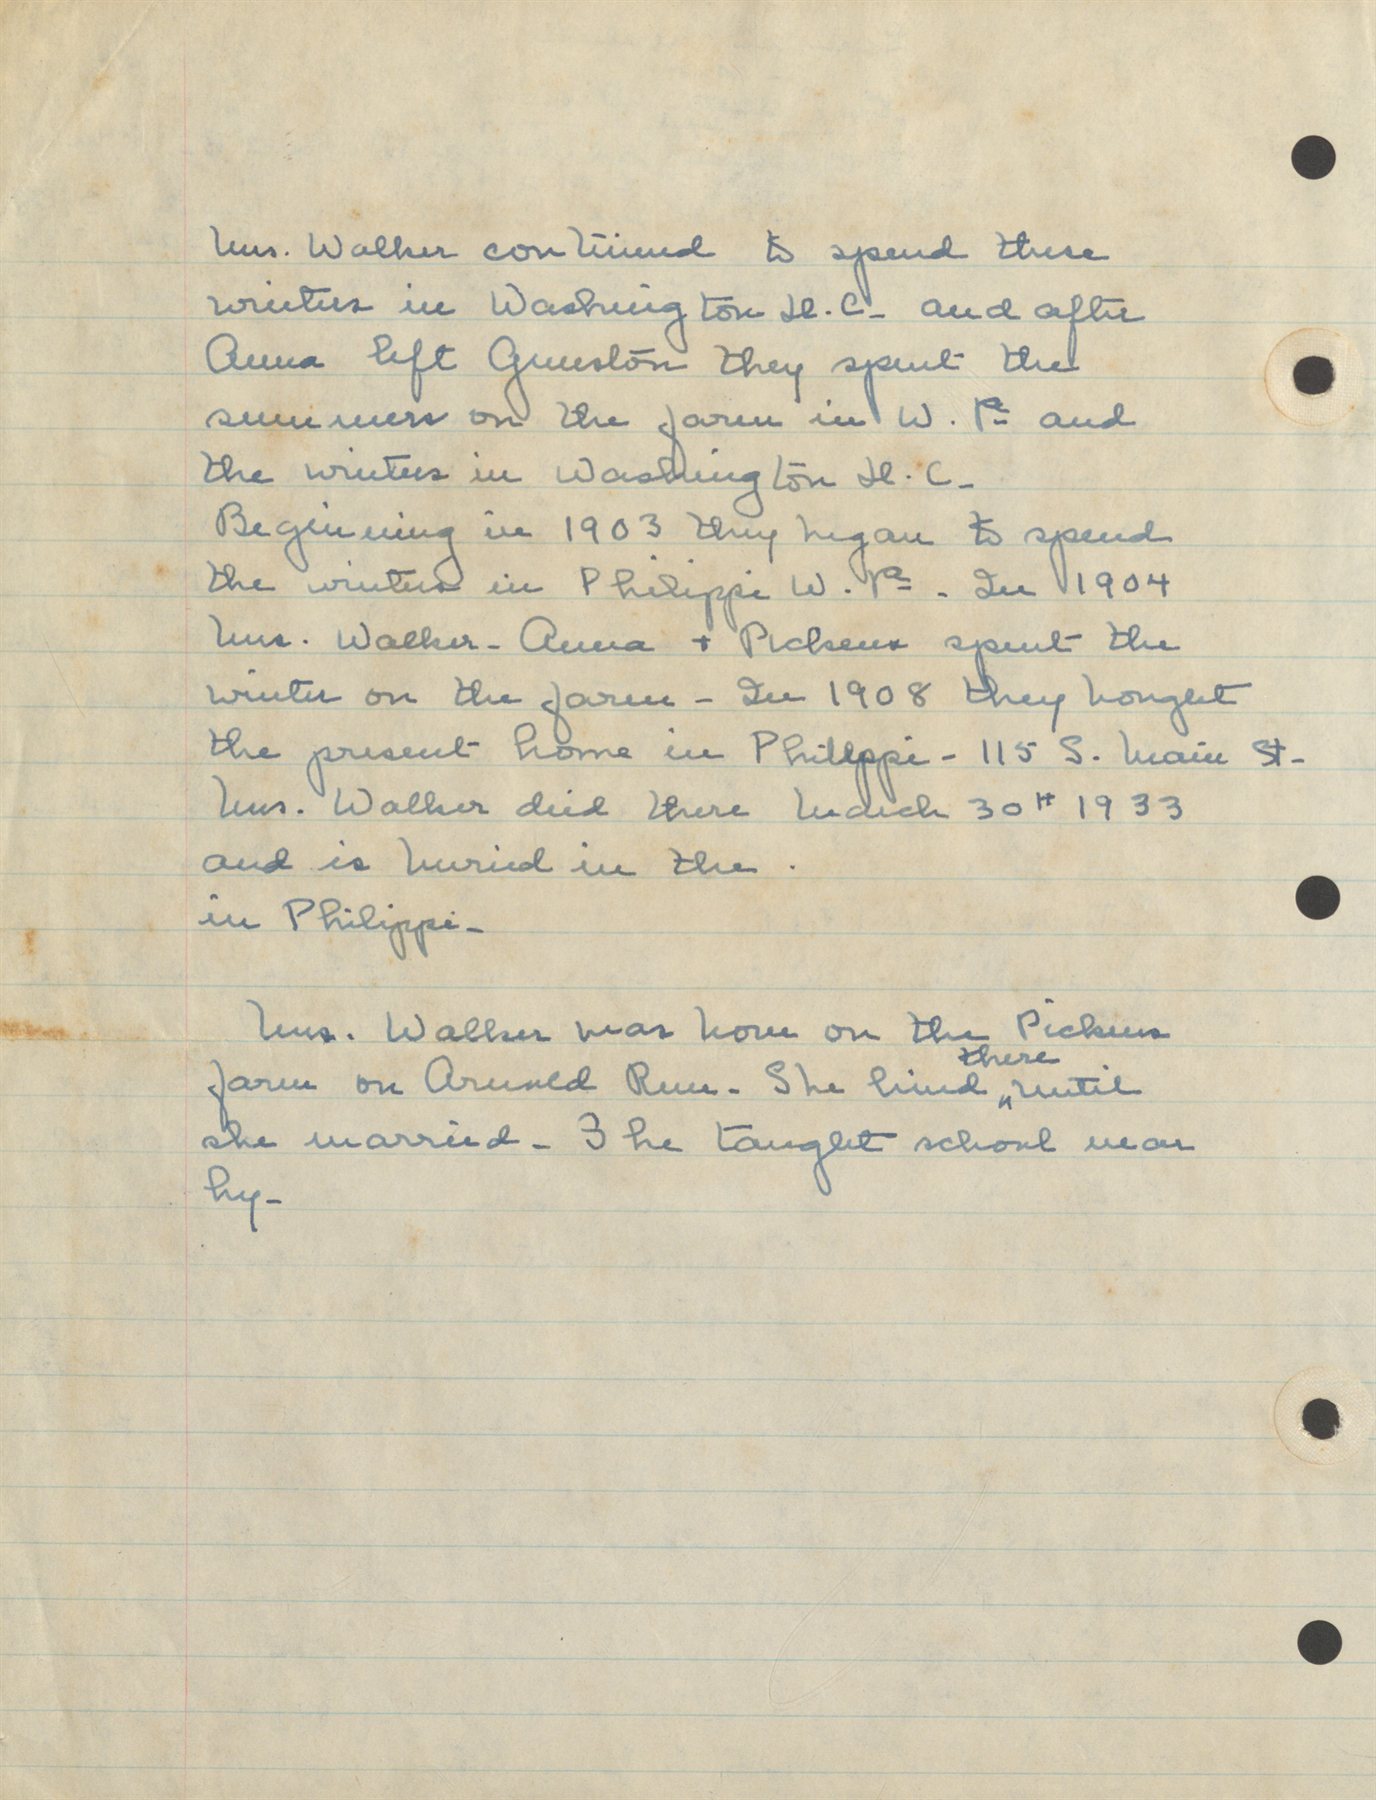 Mrs. Walker continued to spend these
winters in Washington D.C. and after
Anna left Gunston they spent the
summers on the farm in W. Va and
the winters in Washington D.C.
Beginning in 1903 they began to spend
the winters in Philippi W. Va - In 1904
Mrs. Walker - Anna + Pickens spent the
winter on the farm - In 1908 they bought
the present home in Philippi - 115 S. Main St -
Mrs. Walker died there March 30th 1933
and is buried in the .
in Philippi -
Mrs. Walker was born on the Pickens
farm on Arnold Run - She lived there until
she married - She taught school near
by -